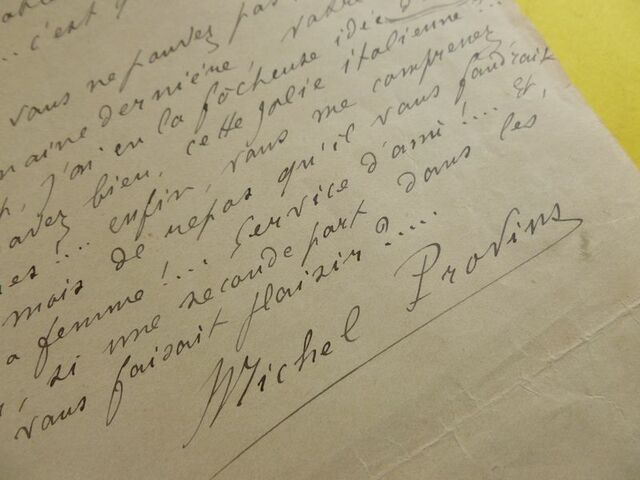 ... c'est
vous ne pouvez pas
maine dernière, votre
j'ai eu la fâcheuse idée
avez bien, cette jolie italienne...
es!... enfin, vous me comprenez
mois de repos qu'il vous faudrait
a femme!... Service d'ami!... Et,
, si une seconde part dans les
vous faisait plaisir?....
Michel Provins